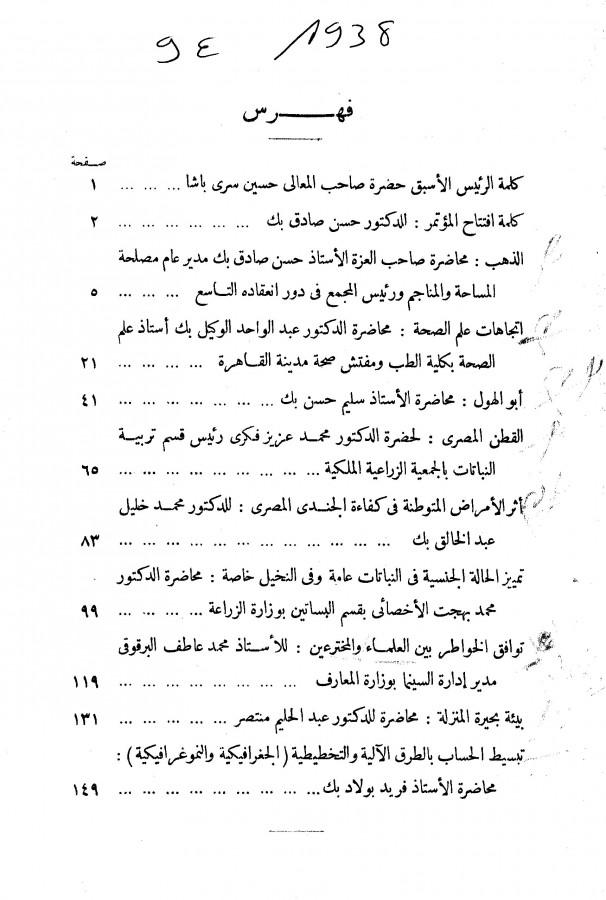 9 ع 1938
فهرس
صفحة
كلمة الرئيس الأسبق حضرة صاحب المعالى حسين سرى باشا ... ... ... ١
كلمة افتتاح المؤتمر : للدكتور حسن صادق بك ... ... ... ... ... ... ٢
الذهب : محاضرة صاحب العزة الأستاذ حسن صادق بك مدير عام مصلحة
المساحة والمناجم ورئيس المجمع فى دور انعقاده التاسع ... ... ... ٥
اتجاهات علم الصحة : محاضرة الدكتور عبد الواحد الوكيل بك أستاذ علم
الصحة بكلية الطب ومفتش صحة مدينة القاهرة ... ... ... ... ٢١
أبو الهول : محاضرة الأستاذ سليم حسن بك ... ... ... ... ... ... ... ٤١
القطن المصرى : لحضرة الدكتور محمد عزيز فكرى رئيس قسم تربية
النباتات بالجمعية الزراعية الملكية ... ... ... ... ... ... ... ... ٦٥
أثر الأمراض المتوطنة فى كفاءة الجندى المصرى : للدكتور محمد خليل
عبد الخالق بك ... ... ... ... ... ... ... ... ... ... ... ٨٣
تمييز الحالة الجنسية فى النباتات عامة وفى النخيل خاصة : محاضرة الدكتور
محمد بهجت الأخصائى بقسم البساتين بوزارة الزراعة ... ... ... ... ٩٩
توافق الخواطر بين العلماء والمخترعين : للأستاذ محمد عاطف البرقوقى
مدير إدارة السينما بوزارة المعارف ... ... ... ... ... ... ... ١١٩
بيئة بحيرة المنزلة : محاضرة للدكتور عبد الحليم منتصر ... ... ... ... ١٣١
تبسيط الحساب بالطرق الآلية والتخطيطية (الجغرافيكية والنموغرافيكية) :
محاضرة الأستاذ فريد بولاد بك ... ... ... ... ... ... ... ... ١٤٩